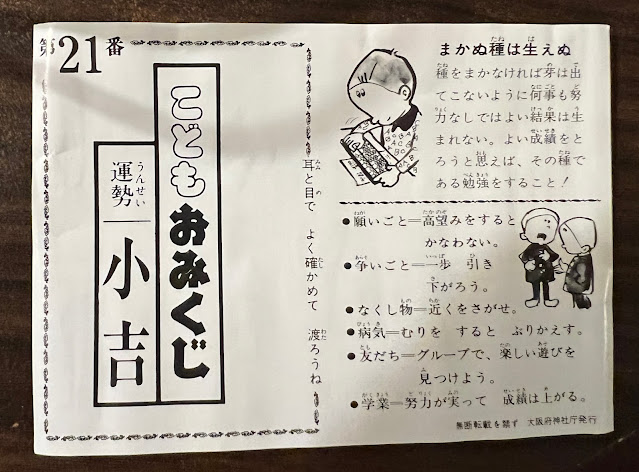 第21番
こどもおみくじ
運勢 小吉
うんせい
耳と目で よく確かめて 渡ろうね
みみ め たし わた
まかぬ種は生えぬ
たね は
種をまかなければ芽は出
てこないように何事も努
力なしではよい結果は生
まれない。よい成績をと
ろうと思えば、その種で
ある勉強をすること!
●願いごと=高望みをすると
かなわない。
●争いごと=一歩 引き
下がろう。
●なくし物=近くをさがせ。
●病気=むりを すると ぶりかえす。
●友だち=グループで、楽しい遊びを
見つけよう。
●学業=努力が実って 成績は上がる。
無断転載を禁ず 大阪府神社庁発行